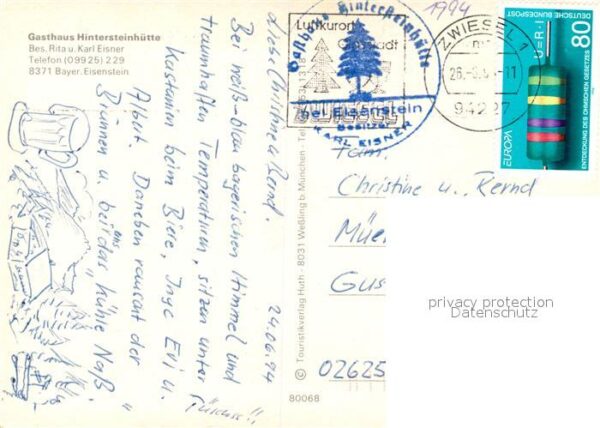 Gasthaus Hintersteinhütte
Bes. Rita u. Karl Eisner
Telefon (09925) 229
8371 Bayer. Eisenstein
Liebe Christine u. Bernd. 24.06.94
Bei weiß-blau bayerischen Himmel und
traumhaften Temperaturen, sitzen unter
Kastanien beim Biere, Inge Evi u.
Albert. Daneben rauscht der
Brunnen u. bei uns
"das kühle Naß."
Tschüss!!
© Touristikverlag Huth · 8031 Weßling b. München · Tel.
80068
1994
Luftkurort
Gasthaus Hintersteinhütte
bei Eisenstein
Besitzer
KARL EISNER
ZWIESEL 1
94227
DEUTSCHE BUNDESPOST
80
U=R·I
EUROPA
ENTDECKUNG DES OHMSCHEN GESETZES
Fam.
Christine u. Bernd
02625
privacy protection
Datenschutz